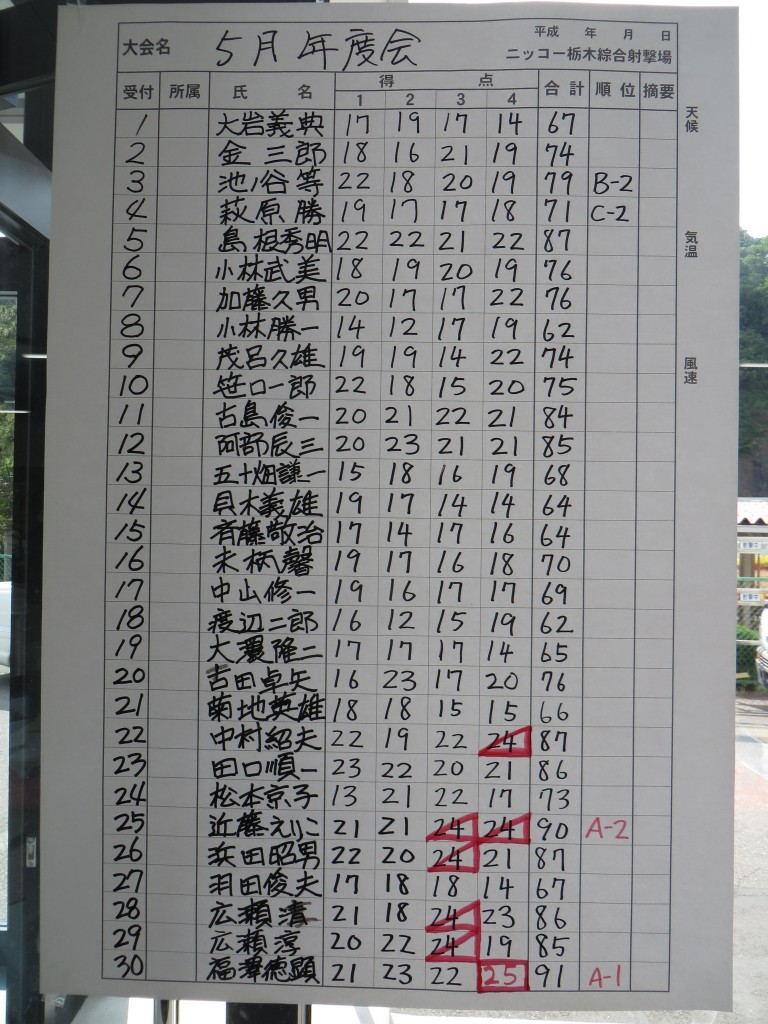 平成 年 月 日
大会名 5月年度会 ニッコー栃木綜合射撃場
受付 所属 氏名 得点 合計 順位 摘要
1 2 3 4
1 大岩義典 17 19 17 14 67
2 金三郎 18 16 21 19 74
3 池ノ谷等 22 18 20 19 79 B-2
4 萩原勝 19 17 17 18 71 C-2
5 島根秀明 22 22 21 22 87
6 小林武美 18 19 20 19 76
7 加藤久男 20 17 17 22 76
8 小林勝一 14 12 17 19 62
9 茂呂久雄 19 19 14 22 74
10 笹口一郎 22 18 15 20 75
11 古島俊一 20 21 22 21 84
12 阿部辰三 20 23 21 21 85
13 五十畑謙一 15 18 16 19 68
14 貝木義雄 19 17 14 14 64
15 斉藤敬治 17 14 17 16 64
16 末柄馨 19 17 16 18 70
17 中山修一 19 16 17 17 69
18 渡辺二郎 16 12 15 19 62
19 大澤隆二 17 17 17 14 65
20 吉田卓矢 16 23 17 20 76
21 菊地英雄 18 18 15 15 66
22 中村紹夫 22 19 22 24 87
23 田口順一 23 22 20 21 86
24 松本京子 13 21 22 17 73
25 近藤えりこ 21 21 24 24 90 A-2
26 浜田昭男 22 20 24 21 87
27 羽田俊夫 17 18 18 14 67
28 広瀬清 21 18 24 23 86
29 広瀬淳 20 22 24 19 85
30 福澤徳顕 21 23 22 25 91 A-1
天候
気温
風速